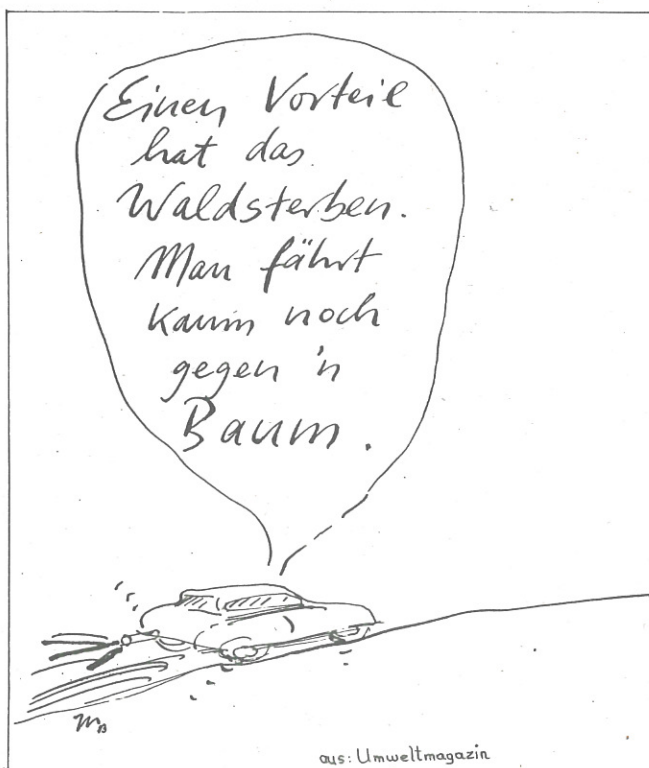 Einen Vorteil
hat das
Waldsterben.
Man fährt
kaum noch
gegen 'n
Baum.
aus: Umweltmagazin